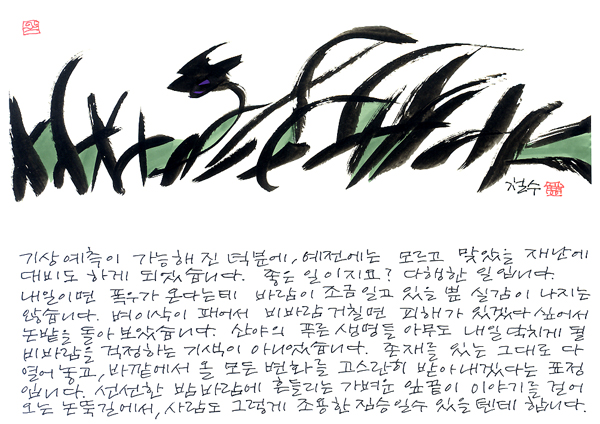 철수
기상예측이 가능해진 덕분에, 예전에는 모르고 맞았을 재난에
대비도 하게 되었습니다. 좋은 일이지요? 다행한 일입니다.
내일이면 폭우가 온다는데 바람이 조금 일고 있을 뿐 실감이 나지는
않습니다. 벼이삭이 패어서 비바람 거칠면 피해가 있겠다 싶어서
논밭을 돌아보았습니다. 산야의 푸른 생명들 아무도 내일 닥치게 될
비바람을 걱정하는 기색이 아니었습니다. 존재를 있는 그대로 다
열어놓고, 바깥에서 올 모든 변화를 고스란히 받아내겠다는 표정
입니다. 선선한 밤바람에 흔들리는 가벼운 잎끝이 이야기를 걸어
오는 논뚝길에서, 사람도 그렇게 조용한 짐승일수 있을텐데 합니다.